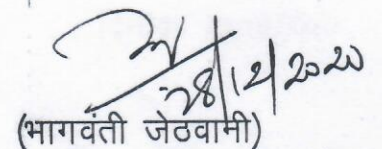 28/12/2020
(भागवंती जेठवामी)